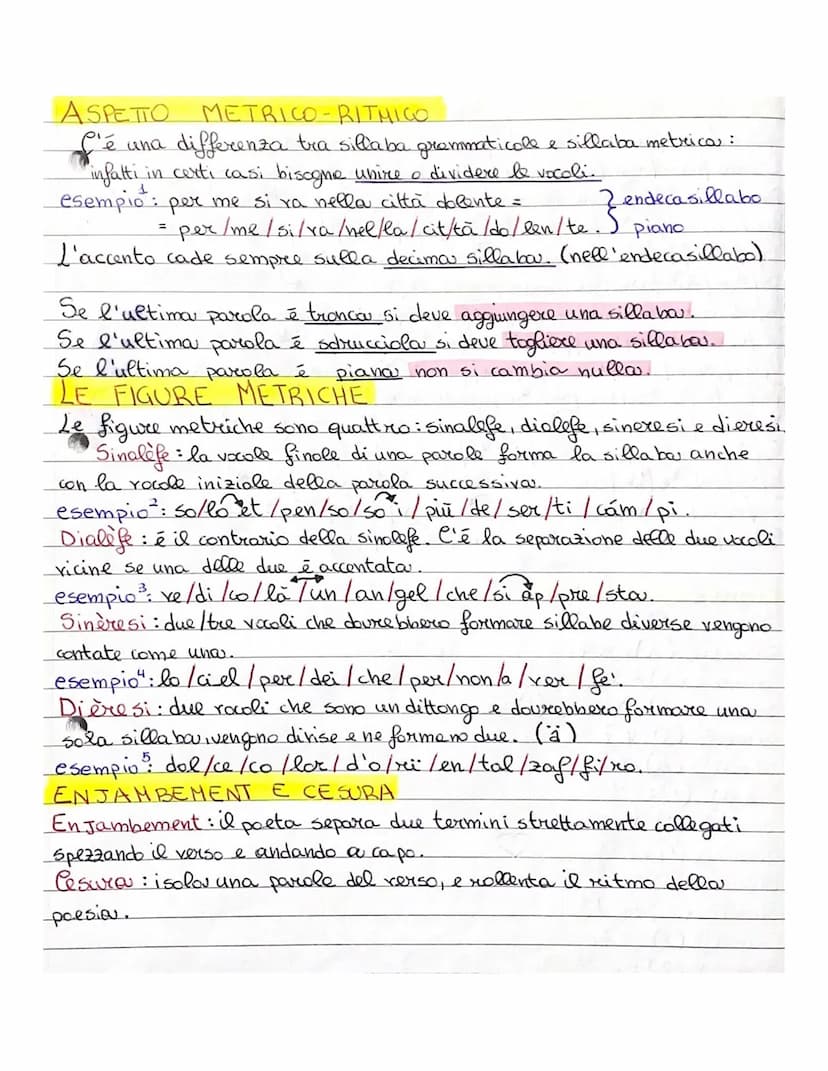 ASPETTO METRICO-RITMICO
C'è una differenza tra sillaba grammaticale e sillaba metrica:
infatti in certi casi bisogna unire o dividere le vocali.
esempio¹: per me si va nella città dolente = } endecasillabo
= per/me/si/va/nel/la/cit/tà/do/len/te. piano
L'accento cade sempre sulla decima sillaba. (nell'endecasillabo)
Se l'ultima parola è tronca si deve aggiungere una sillaba.
Se l'ultima parola è sdrucciola si deve togliere una sillaba.
Se l'ultima parola è piana non si cambia nulla.
LE FIGURE METRICHE
Le figure metriche sono quattro: sinalefe, dialefe, sineresi e dieresi
Sinalèfe: la vocale finale di una parola forma la sillaba anche
con la vocale iniziale della parola successiva.
esempio²: so/lo et/pen/so/so i/più/de/ser/ti/cám/pi.
Dialèfe: è il contrario della sinalefe. C'è la separazione delle due vocali
vicine se una delle due è accentata.
esempio³: ve/di/co/là/un/an/gel/che/si ap/pre/sta.
Sinèresi: due/tre vocali che dovrebbero formare sillabe diverse vengono
contate come una.
esempio⁴: lo/ciel/per/dei/che/per/non/a/ver/fe'.
Dièresi: due vocali che sono un dittongo e dovrebbero formare una
sola sillaba, vengono divise e ne formano due. (ä)
esempio⁵: dol/ce/co/lor/d'o/ri/en/tal/zaf/fi/ro.
ENJAMBEMENT E CESURA
Enjambement: il poeta separa due termini strettamente collegati
spezzando il verso e andando a capo.
Cesura: isola una parola del verso, e rallenta il ritmo della
poesia.